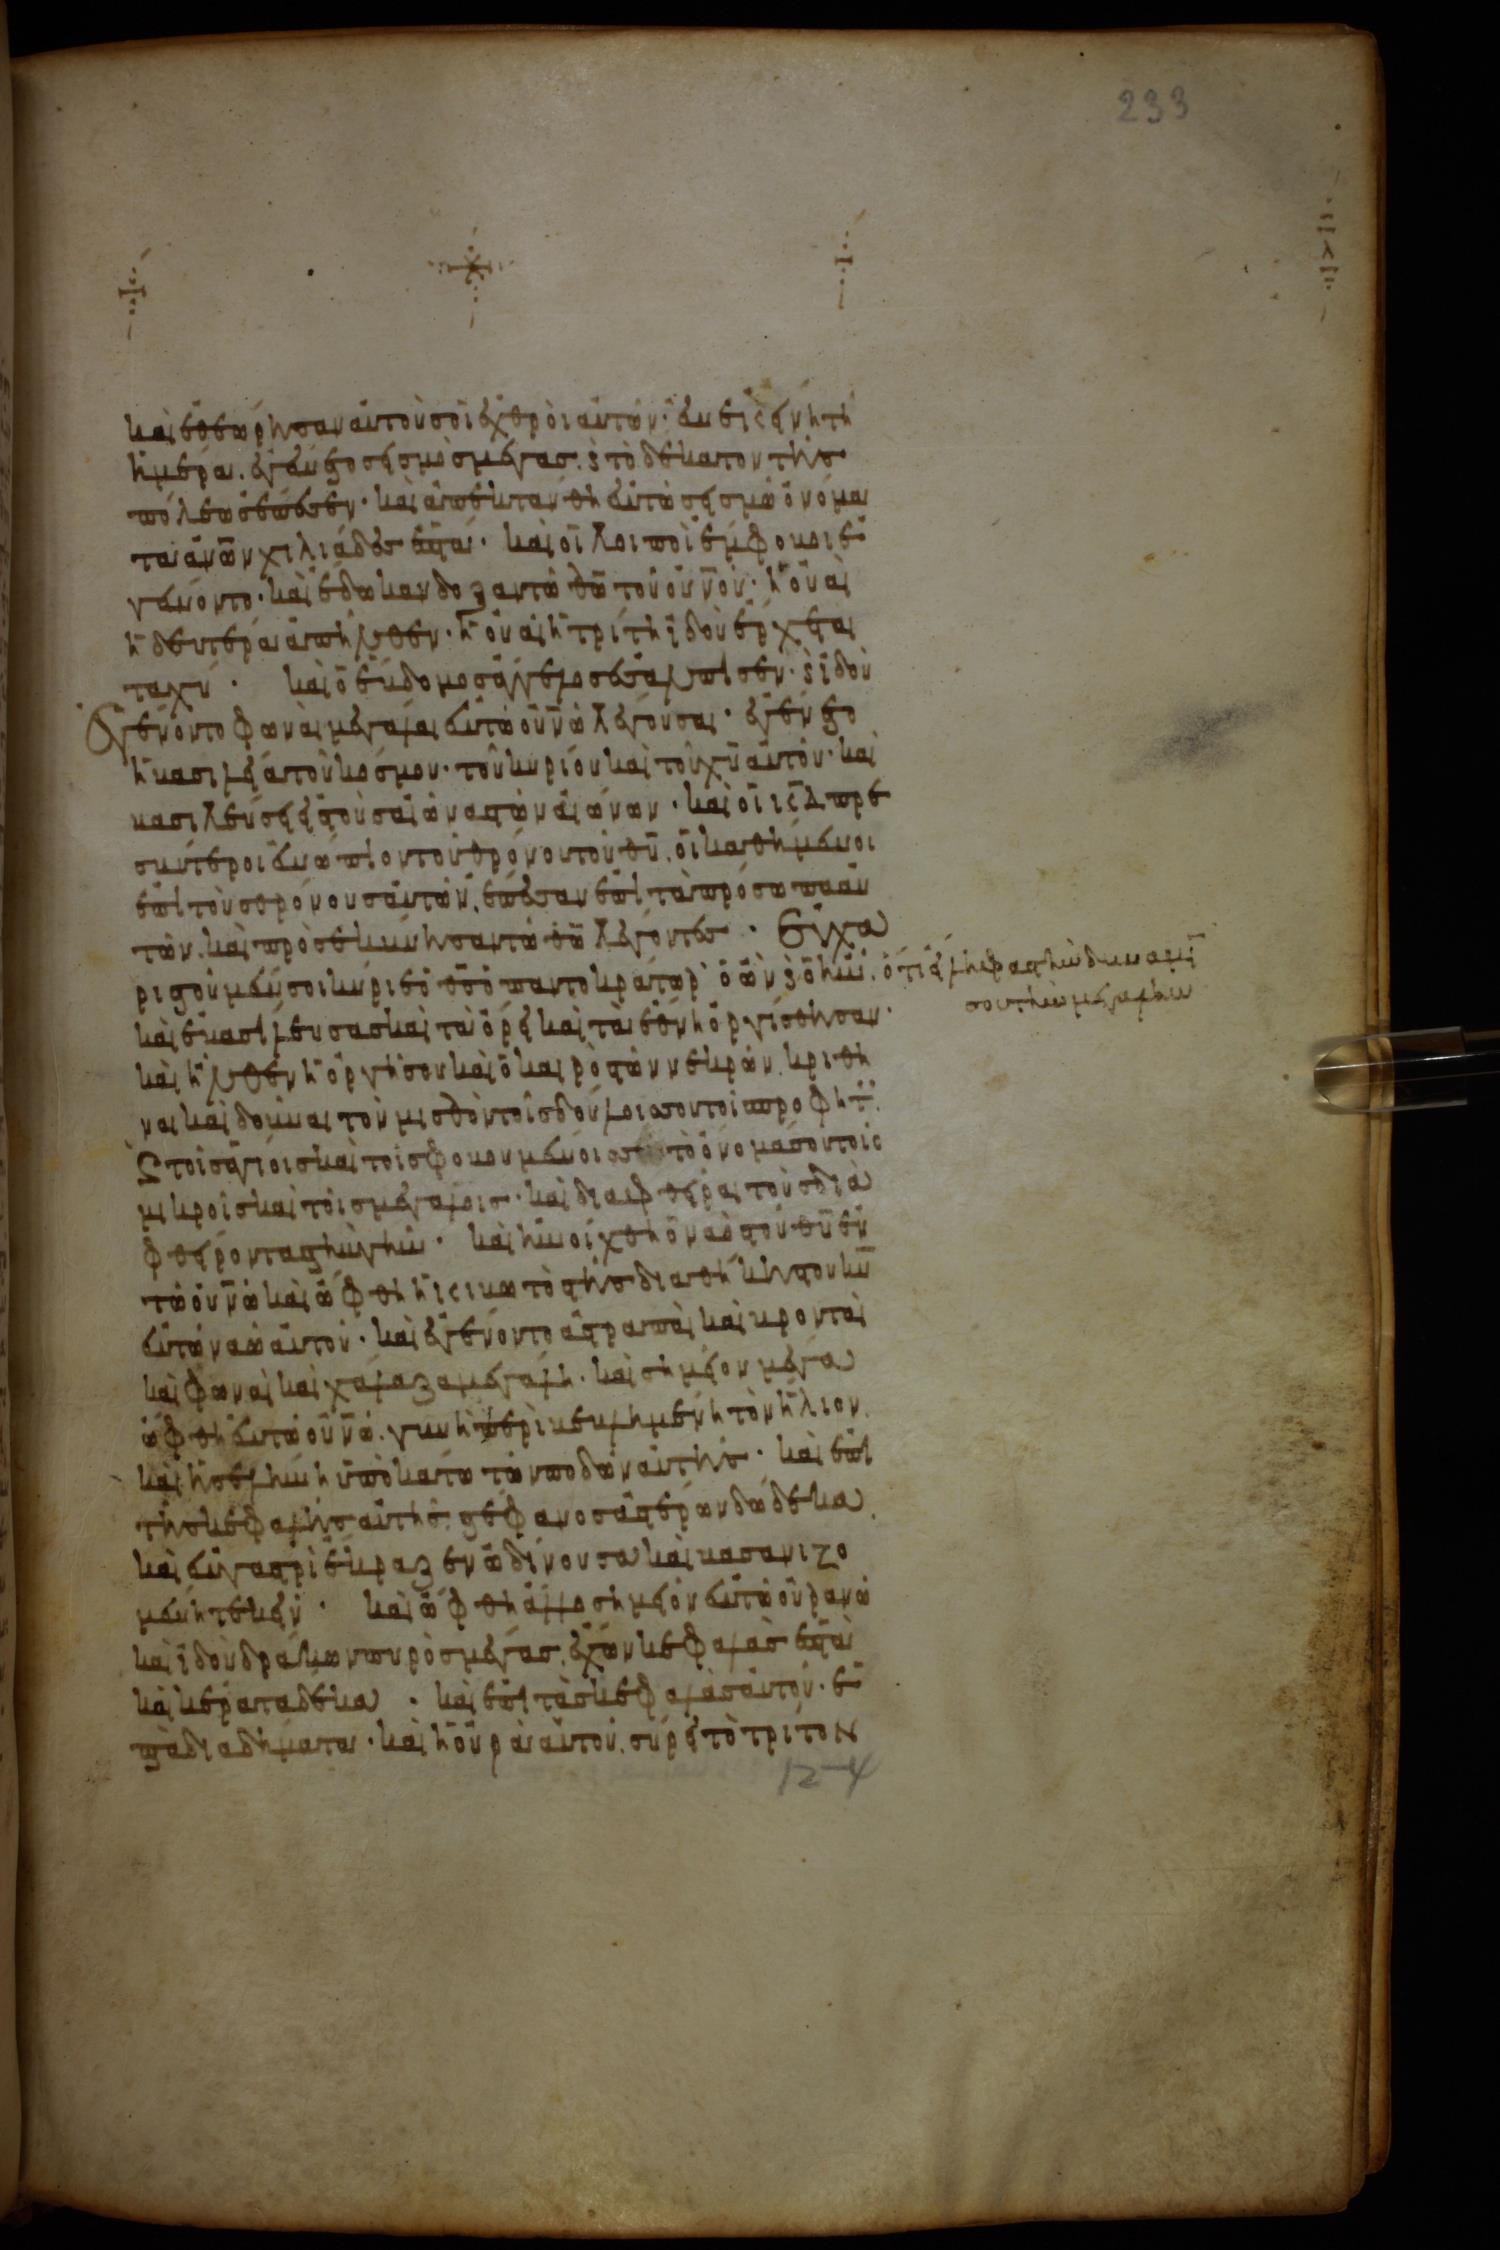 233
καὶ ἐθεώρησαν αὐτοὺς οἱ ἐχθροὶ αὐτῶν· ἐν ἐκείνη τῆ
ἡμέρα. ἐγένετο σεισμὸς μέγας. καὶ τὸ δέκατον τῆς
πόλεως ἔπεσεν· καὶ ἀπεκτάνθη ἐν τῶ σεισμῶ ὀνόμα
τα ἀνῶν χιλιάδες ἑπτά· καὶ οἱ λοιποὶ ἔμφοβοι ἐ
γένοντο· καὶ ἔδωκαν δόξαν τῶ θῶ τοῦ οὐνοῦ· ἡ οὐαὶ
ἡ δευτέρα ἀπῆλθεν· ἡ οὐαὶ ἡ τρίτη ἰδοὺ ἔρχεται
ταχύ· καὶ ὁ ἕβδομος ἄγγελος ἐσάλπισεν· καὶ ἰδοὺ
ἐγένοντο φωναὶ μεγάλαι ἐν τῶ οὐνῶ λέγουσαι· ἐγένετο
ἡ βασιλεία τοῦ κόσμου· τοῦ κυρίου καὶ τοῦ χυ αὐτοῦ· καὶ
βασιλεύσει εἰς τοὺς αἰῶνας τῶν αἰώνων· καὶ οἱ εἴκοσι δ πρε
σβύτεροι ἐνώπιον τοῦ θρόνου τοῦ θυ. οἱ καθήμενοι
ἐπὶ τοὺς θρόνους αὐτῶν, ἔπεσαν ἐπὶ τὰ πρόσωπα αὐ
τῶν. καὶ προσεκύνησαν τῶ θῶ λέγοντες· Εὐχα
ριστοῦμέν σοι κύριε ὁ θς ὁ παντοκράτωρ ὁ ὢν καὶ ὁ ἦν. ὅτι εἴληφας τὴν δύναμίν
σου τὴν μεγάλην
καὶ ἐβασίλευσας καὶ τὰ ὄρει καὶ τὰ ἔθνη ὀργίσθησαν.
καὶ ἦλθεν ἡ ὀργή σου καὶ ὁ καιρὸς τῶν νεκρῶν. κριθῆ
ναι καὶ δοῦναι τὸν μισθὸν τοῖς δούλοις σου τοῖς προφήτ
καὶ τοῖς ἁγίοις καὶ τοῖς φοβουμένοις τὸ ὄνομά σου τοῖς
μικροῖς καὶ τοῖς μεγάλοις· καὶ διαφθεῖραι τοὺς δια
φθείροντας τὴν γῆν· καὶ ἠνοίχθη ὁ ναὸς τοῦ θυ ἐν
τῶ οὐνῶ καὶ ὤφθη ἡ κιβωτὸς τῆς διαθήκης τοῦ κυ
ἐν τῶ ναῶ αὐτοῦ· καὶ ἐγένοντο ἀστραπαὶ καὶ βρονταὶ
καὶ φωναὶ καὶ χάλαζα μεγάλη. καὶ σημεῖον μέγα
ὤφθη ἐν τῶ οὐνῶ. γυνὴ περιβεβλημένη τὸν ἥλιον.
καὶ ἡ σελήνη ὑποκάτω τῶν ποδῶν αὐτῆς· καὶ ἐπὶ
τῆς κεφαλῆς αὐτῆς στέφανος ἀστέρων δώδεκα.
καὶ ἐν γαστρὶ ἔκραζεν ὠδίνουσα καὶ βασανιζο
μένη τεκεῖν· καὶ ὤφθη ἄλλο σημεῖον ἐν τῶ οὐρανῶ
καὶ ἰδοὺ δράκων πυρὸς μέγας. ἔχων κεφαλὰς ἑπτὰ
καὶ κέρατα δέκα· καὶ ἐπὶ τὰς κεφαλὰς αὐτοῦ. ἑ
πτὰ διαδήματα· καὶ ἡ οὐρὰ αὐτοῦ. σύρει τὸ τρίτον
12-4